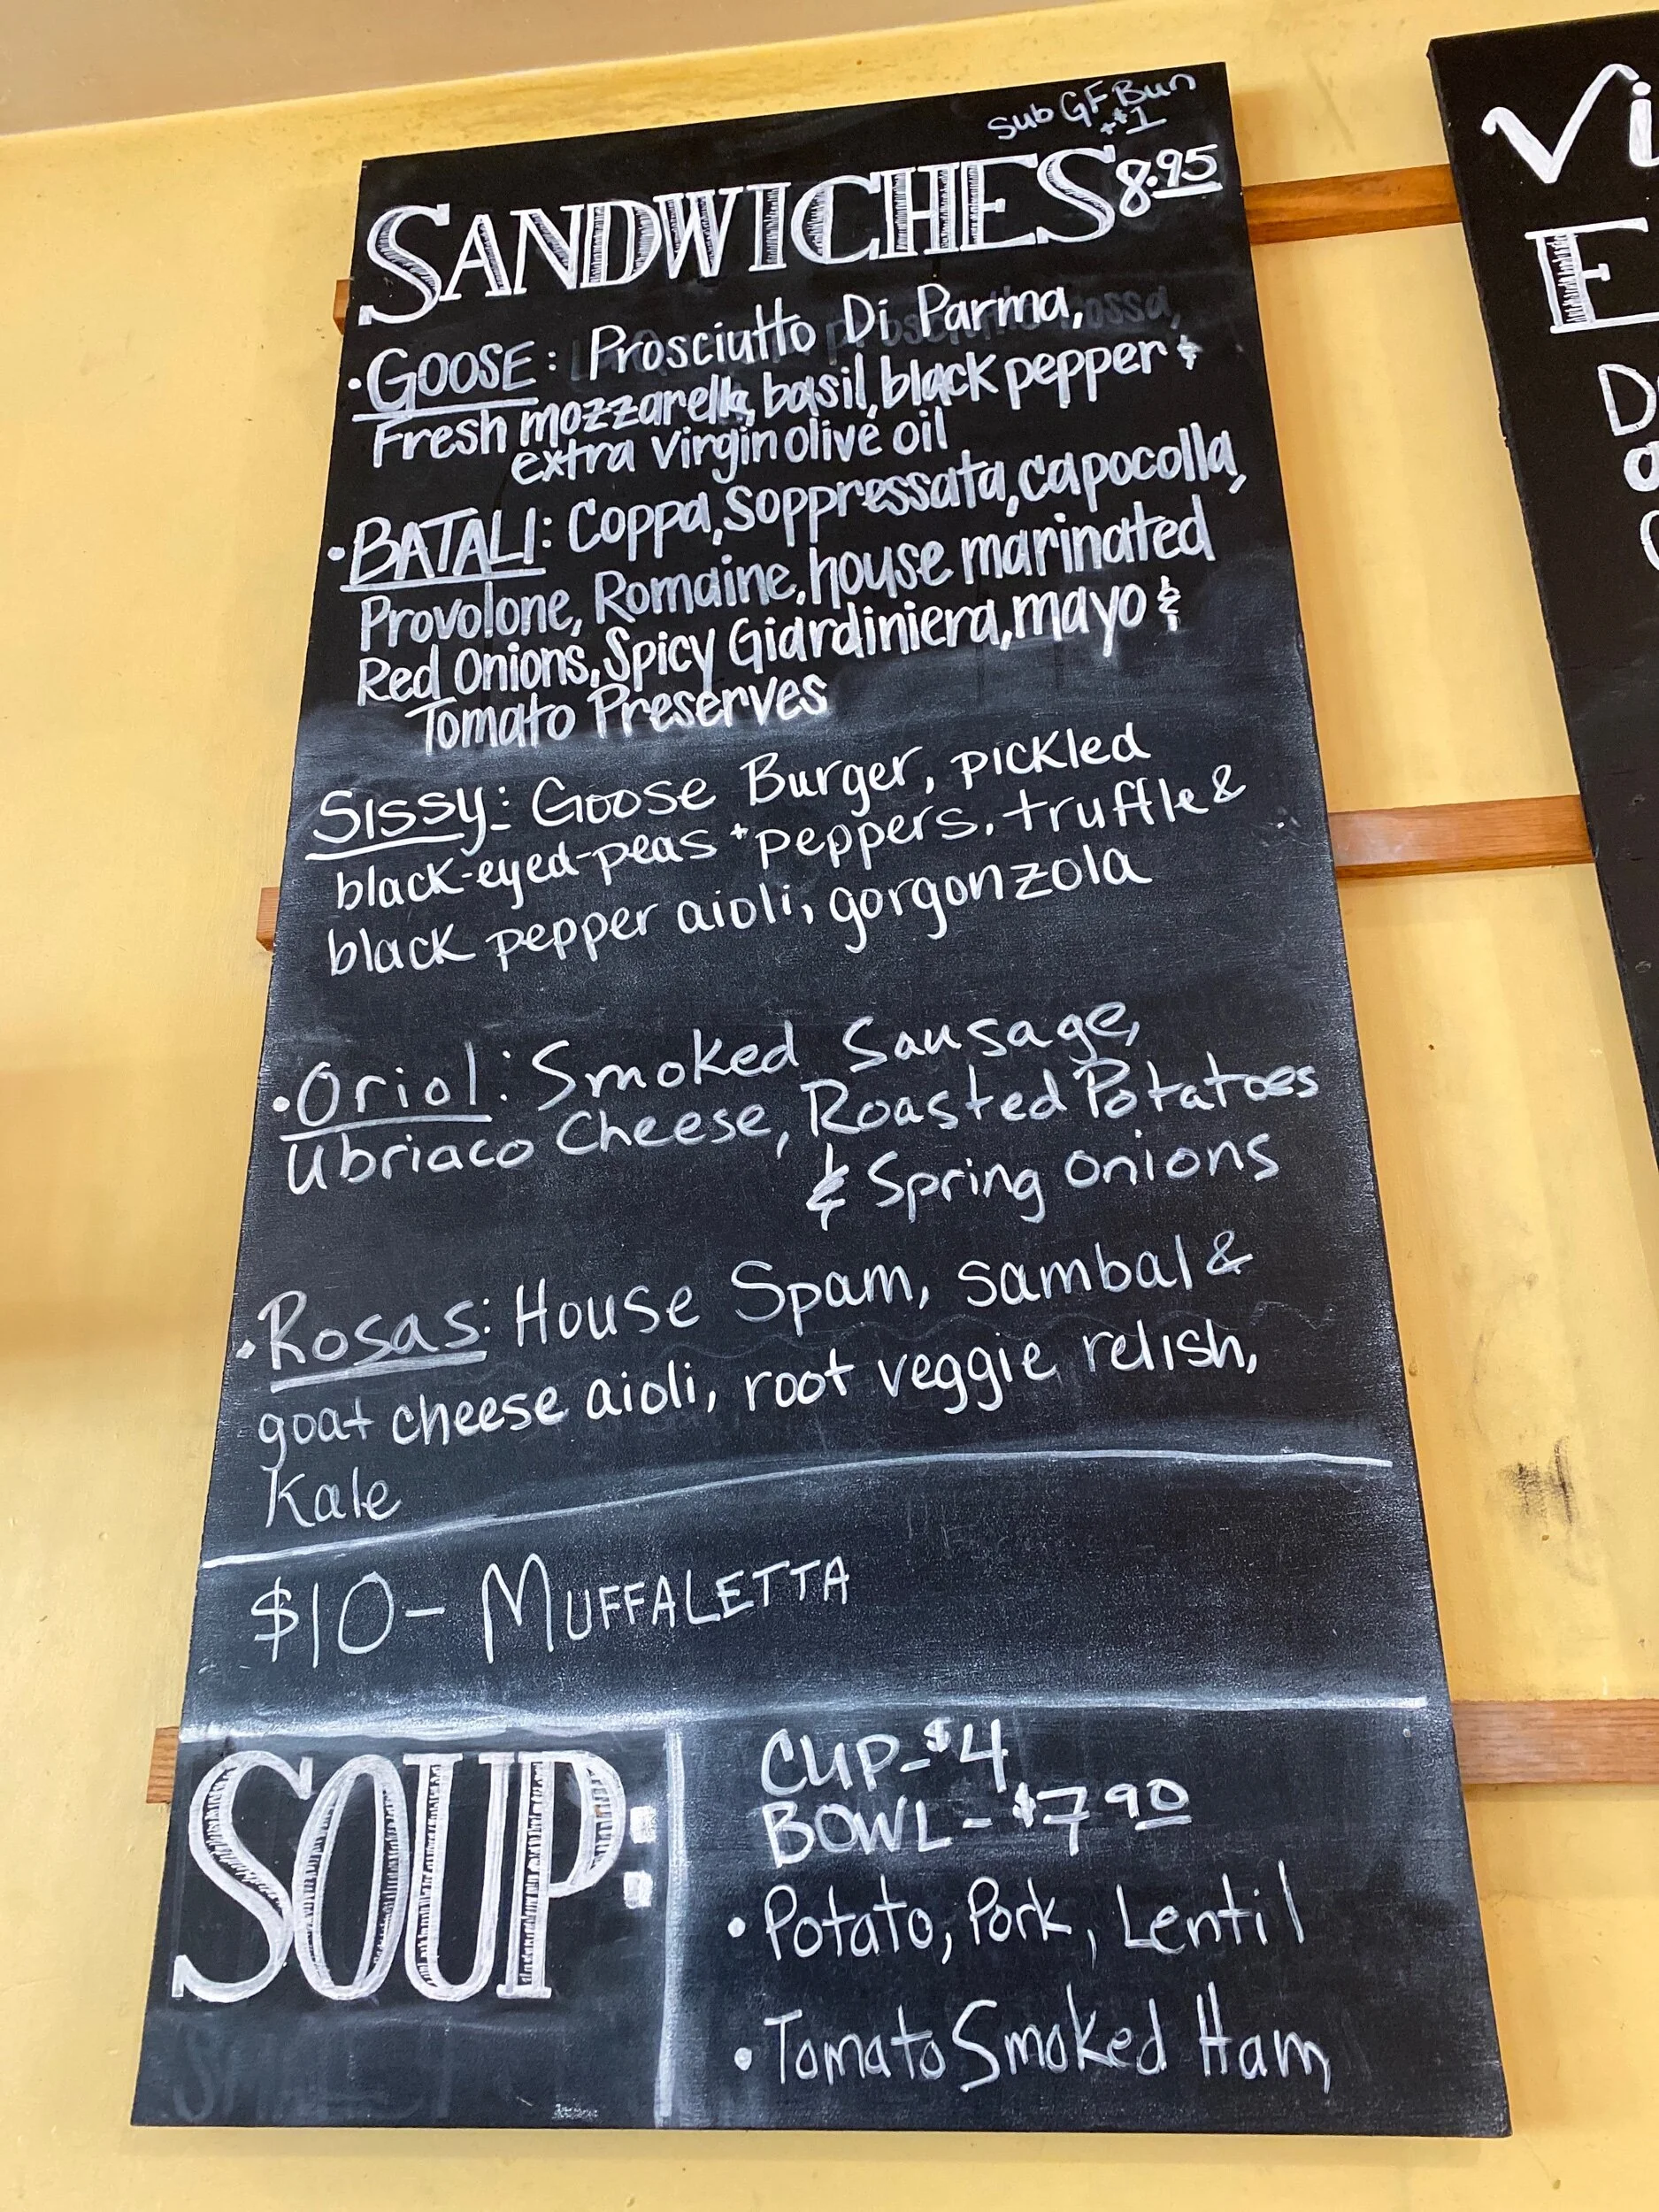 Sub GF Bun
+$1
SANDWICHES 8.95
•GOOSE: Prosciutto Di Parma,
Fresh mozzarella, basil, black pepper &
extra virgin olive oil
•BATALI: Coppa, Soppressata, Capocolla,
Provolone, Romaine, house marinated
Red Onions, Spicy Giardiniera, mayo &
Tomato Preserves
Sissy: Goose Burger, pickled
black-eyed-peas + peppers, truffle &
black pepper aioli, gorgonzola
•Oriol: Smoked Sausage,
Ubriaco Cheese, Roasted Potatoes
& Spring Onions
•Rosas: House Spam, sambal &
goat cheese aioli, root veggie relish,
Kale
$10 - MUFFALETTA
SOUP:
CUP - $4
BOWL - $7 90
• Potato, Pork, Lentil
• Tomato Smoked Ham
Vi
E